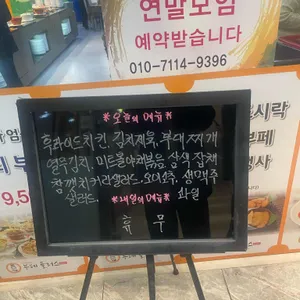 연말모임
예약받습니다
010-7114-9396
*오늘의 메뉴*
후라이드치킨, 김치제육, 부대찌개
열무김치, 미트볼야채볶음, 삼색 잡채
참깨치커리샐러드, 오이고추, 생맥주
샐러드, *내일의 메뉴* 과일
휴 무
시락
부페
행사
9,5